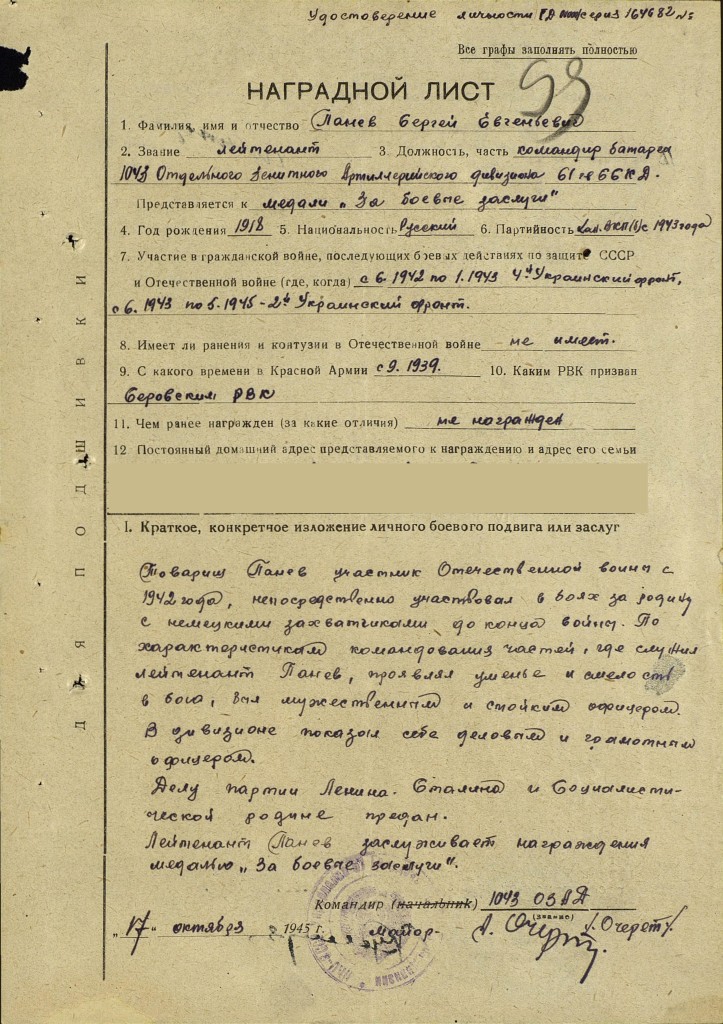 Удостоверение личности серия 164682
Все графы заполнять полностью
93
НАГРАДНОЙ ЛИСТ
1. Фамилия, имя и отчество Панев Сергей Евгеньевич
2. Звание лейтенант 3. Должность, часть командир батареи
1043 Отдельного Зенитного Артиллерийского дивизиона 61 66КД.
Представляется к медали „За боевые заслуги"
4. Год рождения 1918 5. Национальность Русский 6. Партийность ВКП(б) с 1943 года
7. Участие в гражданской войне, последующих боевых действиях по защите СССР
и Отечественной войне (где, когда) с 6.1942 по 1.1943 4й Украинский фронт,
с 6. 1943 по 5.1945 - 2й Украинский фронт.
8. Имеет ли ранения и контузии в Отечественной войне не имеет.
9. С какого времени в Красной Армии с 9. 1939. 10. Каким РВК призван
РВК
11. Чем ранее награжден (за какие отличия) не награжден
12 Постоянный домашний адрес представляемого к награждению и адрес его семьи
ДЛЯ ПОДШИВКИ
I. Краткое, конкретное изложение личного боевого подвига или заслуг
Товарищ Панев участник Отечественной войны с
1942 года, непосредственно участвовал в боях за родину
с немецкими захватчиками до конца войны. По
характеристикам командования частей, где служил
лейтенант Панев, проявлял уменье и смелость
в боях, был мужественным и стойким офицером.
В дивизионе показал себя деловым и грамотным
офицером.
Делу партии Ленина - Сталина и Социалисти-
ческой родине предан.
Лейтенант Панев заслуживает награждения
медалью „За боевые заслуги".
Командир (начальник) 1043 ОЗАД
(звание)
„17" октября 1945 г. майор - /Очерет/